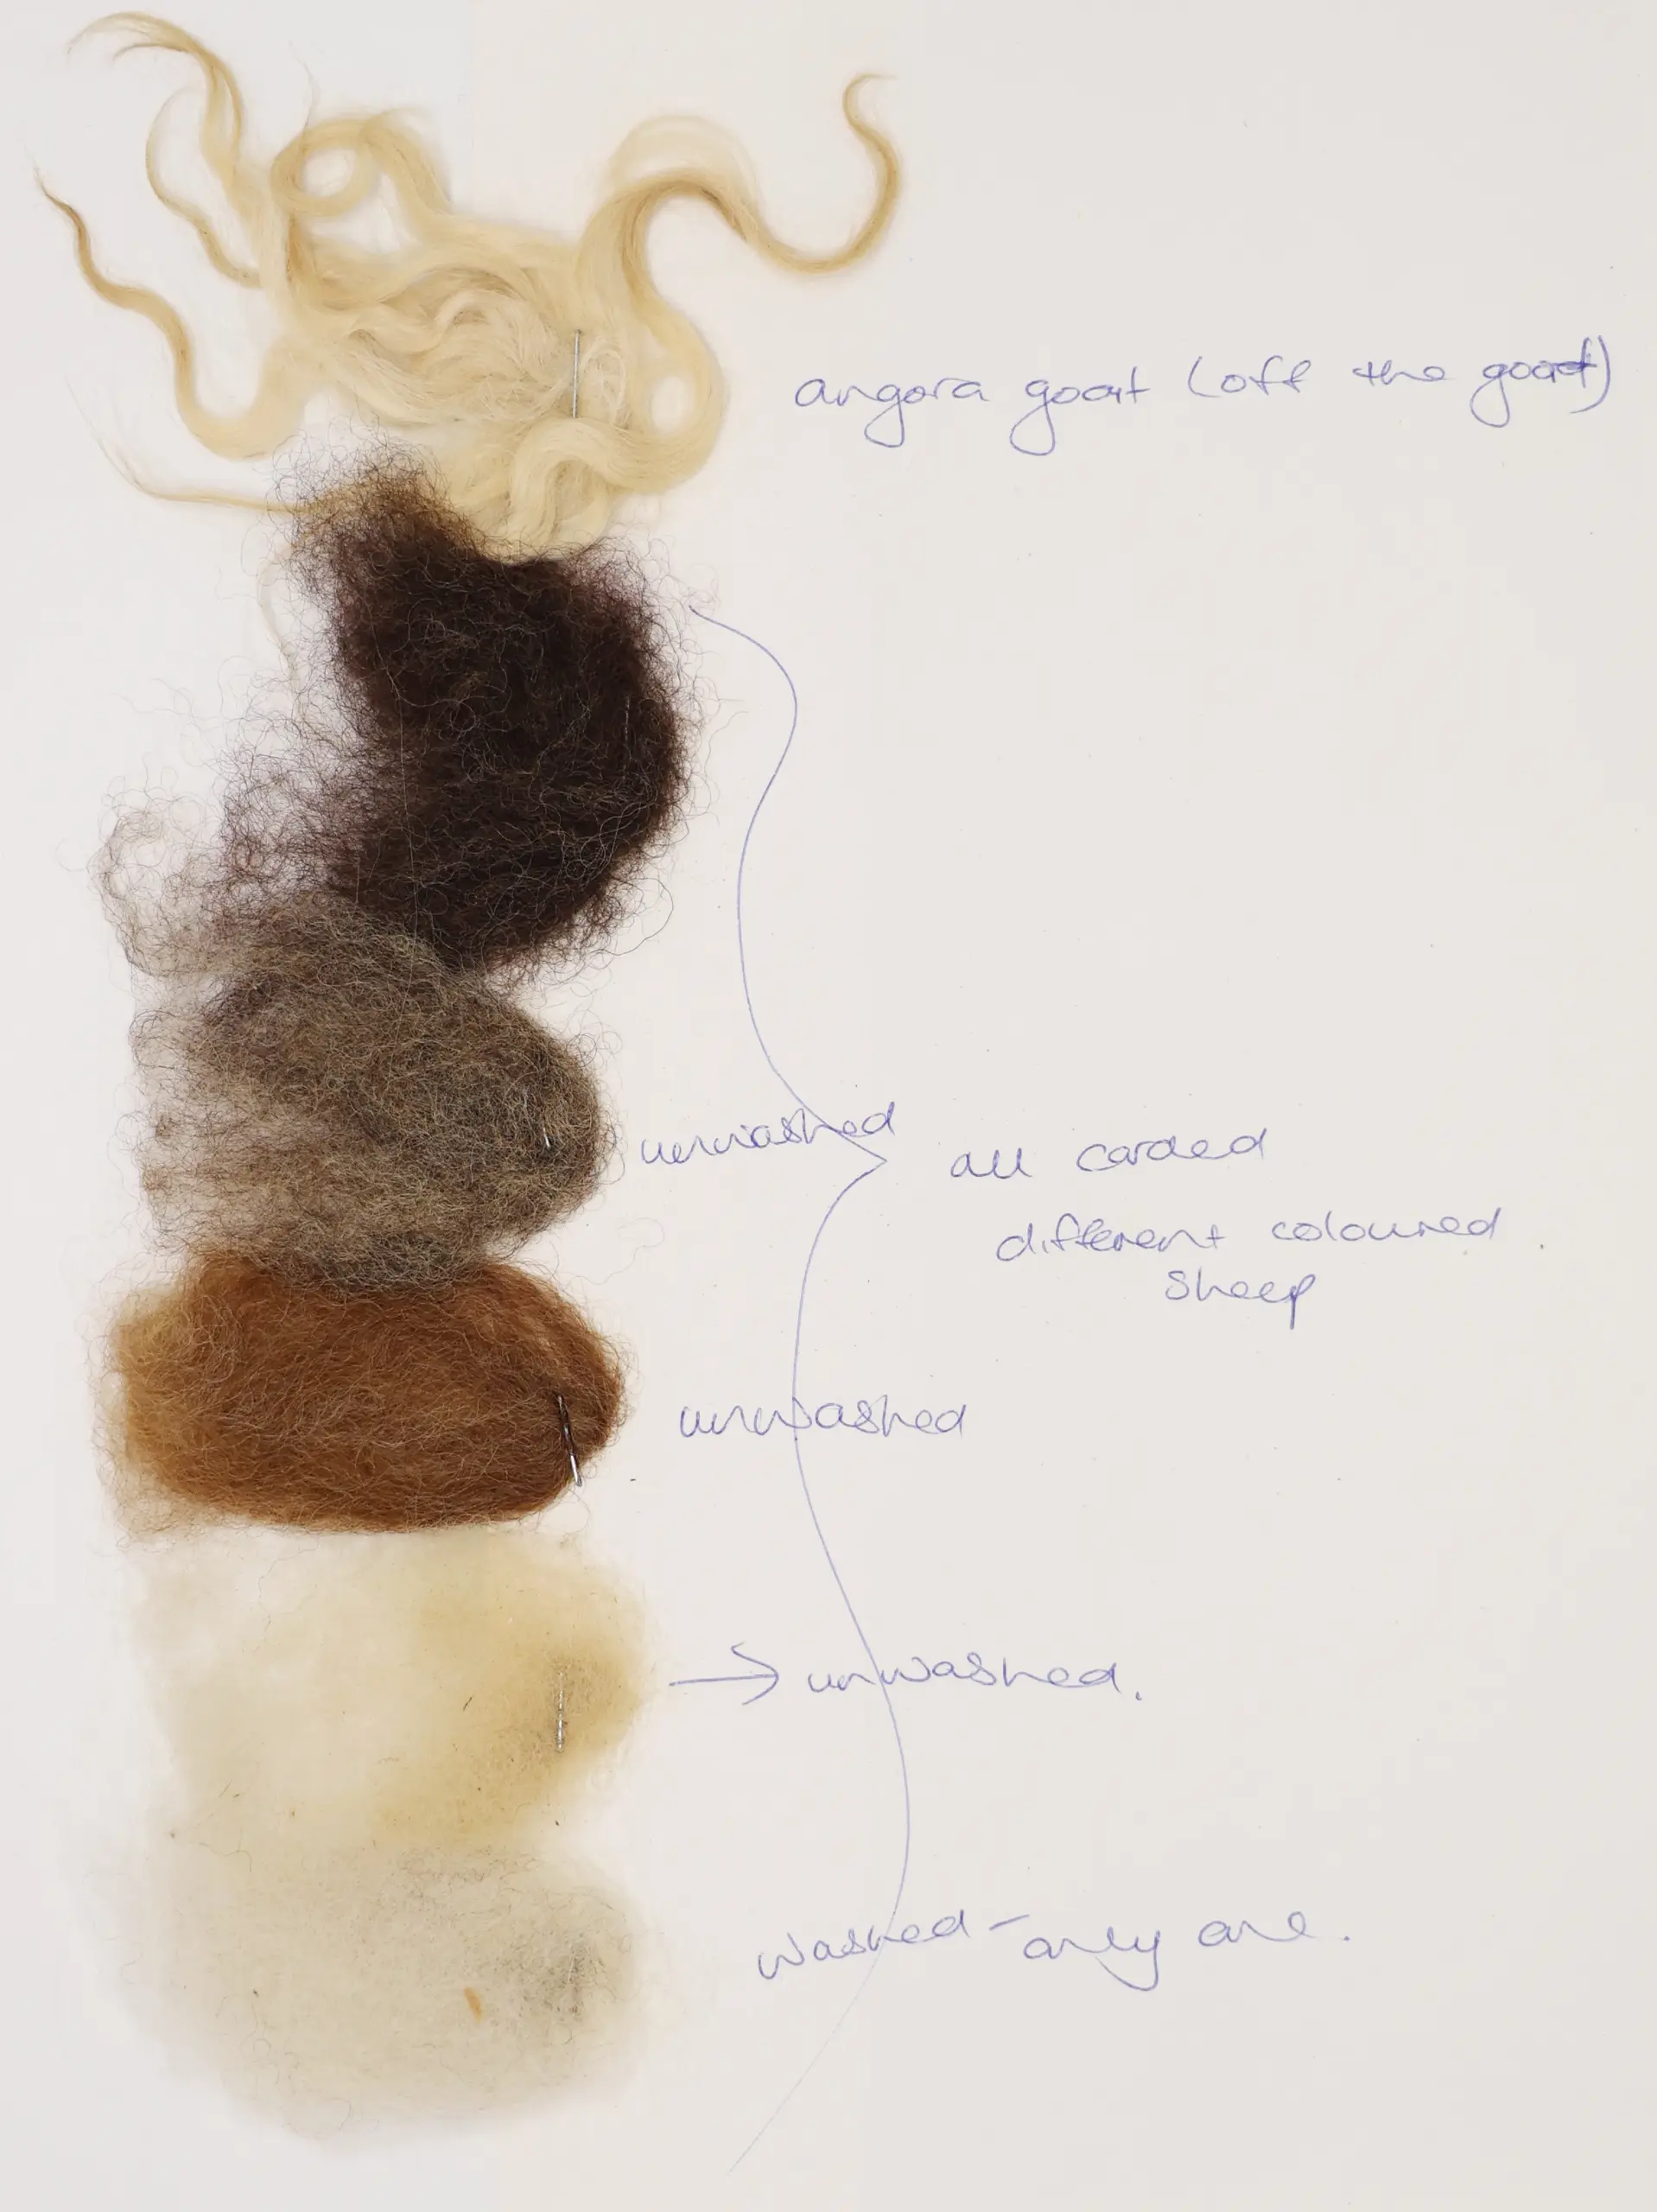 angora goat (off the goat)
unwashed
all carded
different coloured
sheep
unwashed
→ unwashed.
washed – only one.